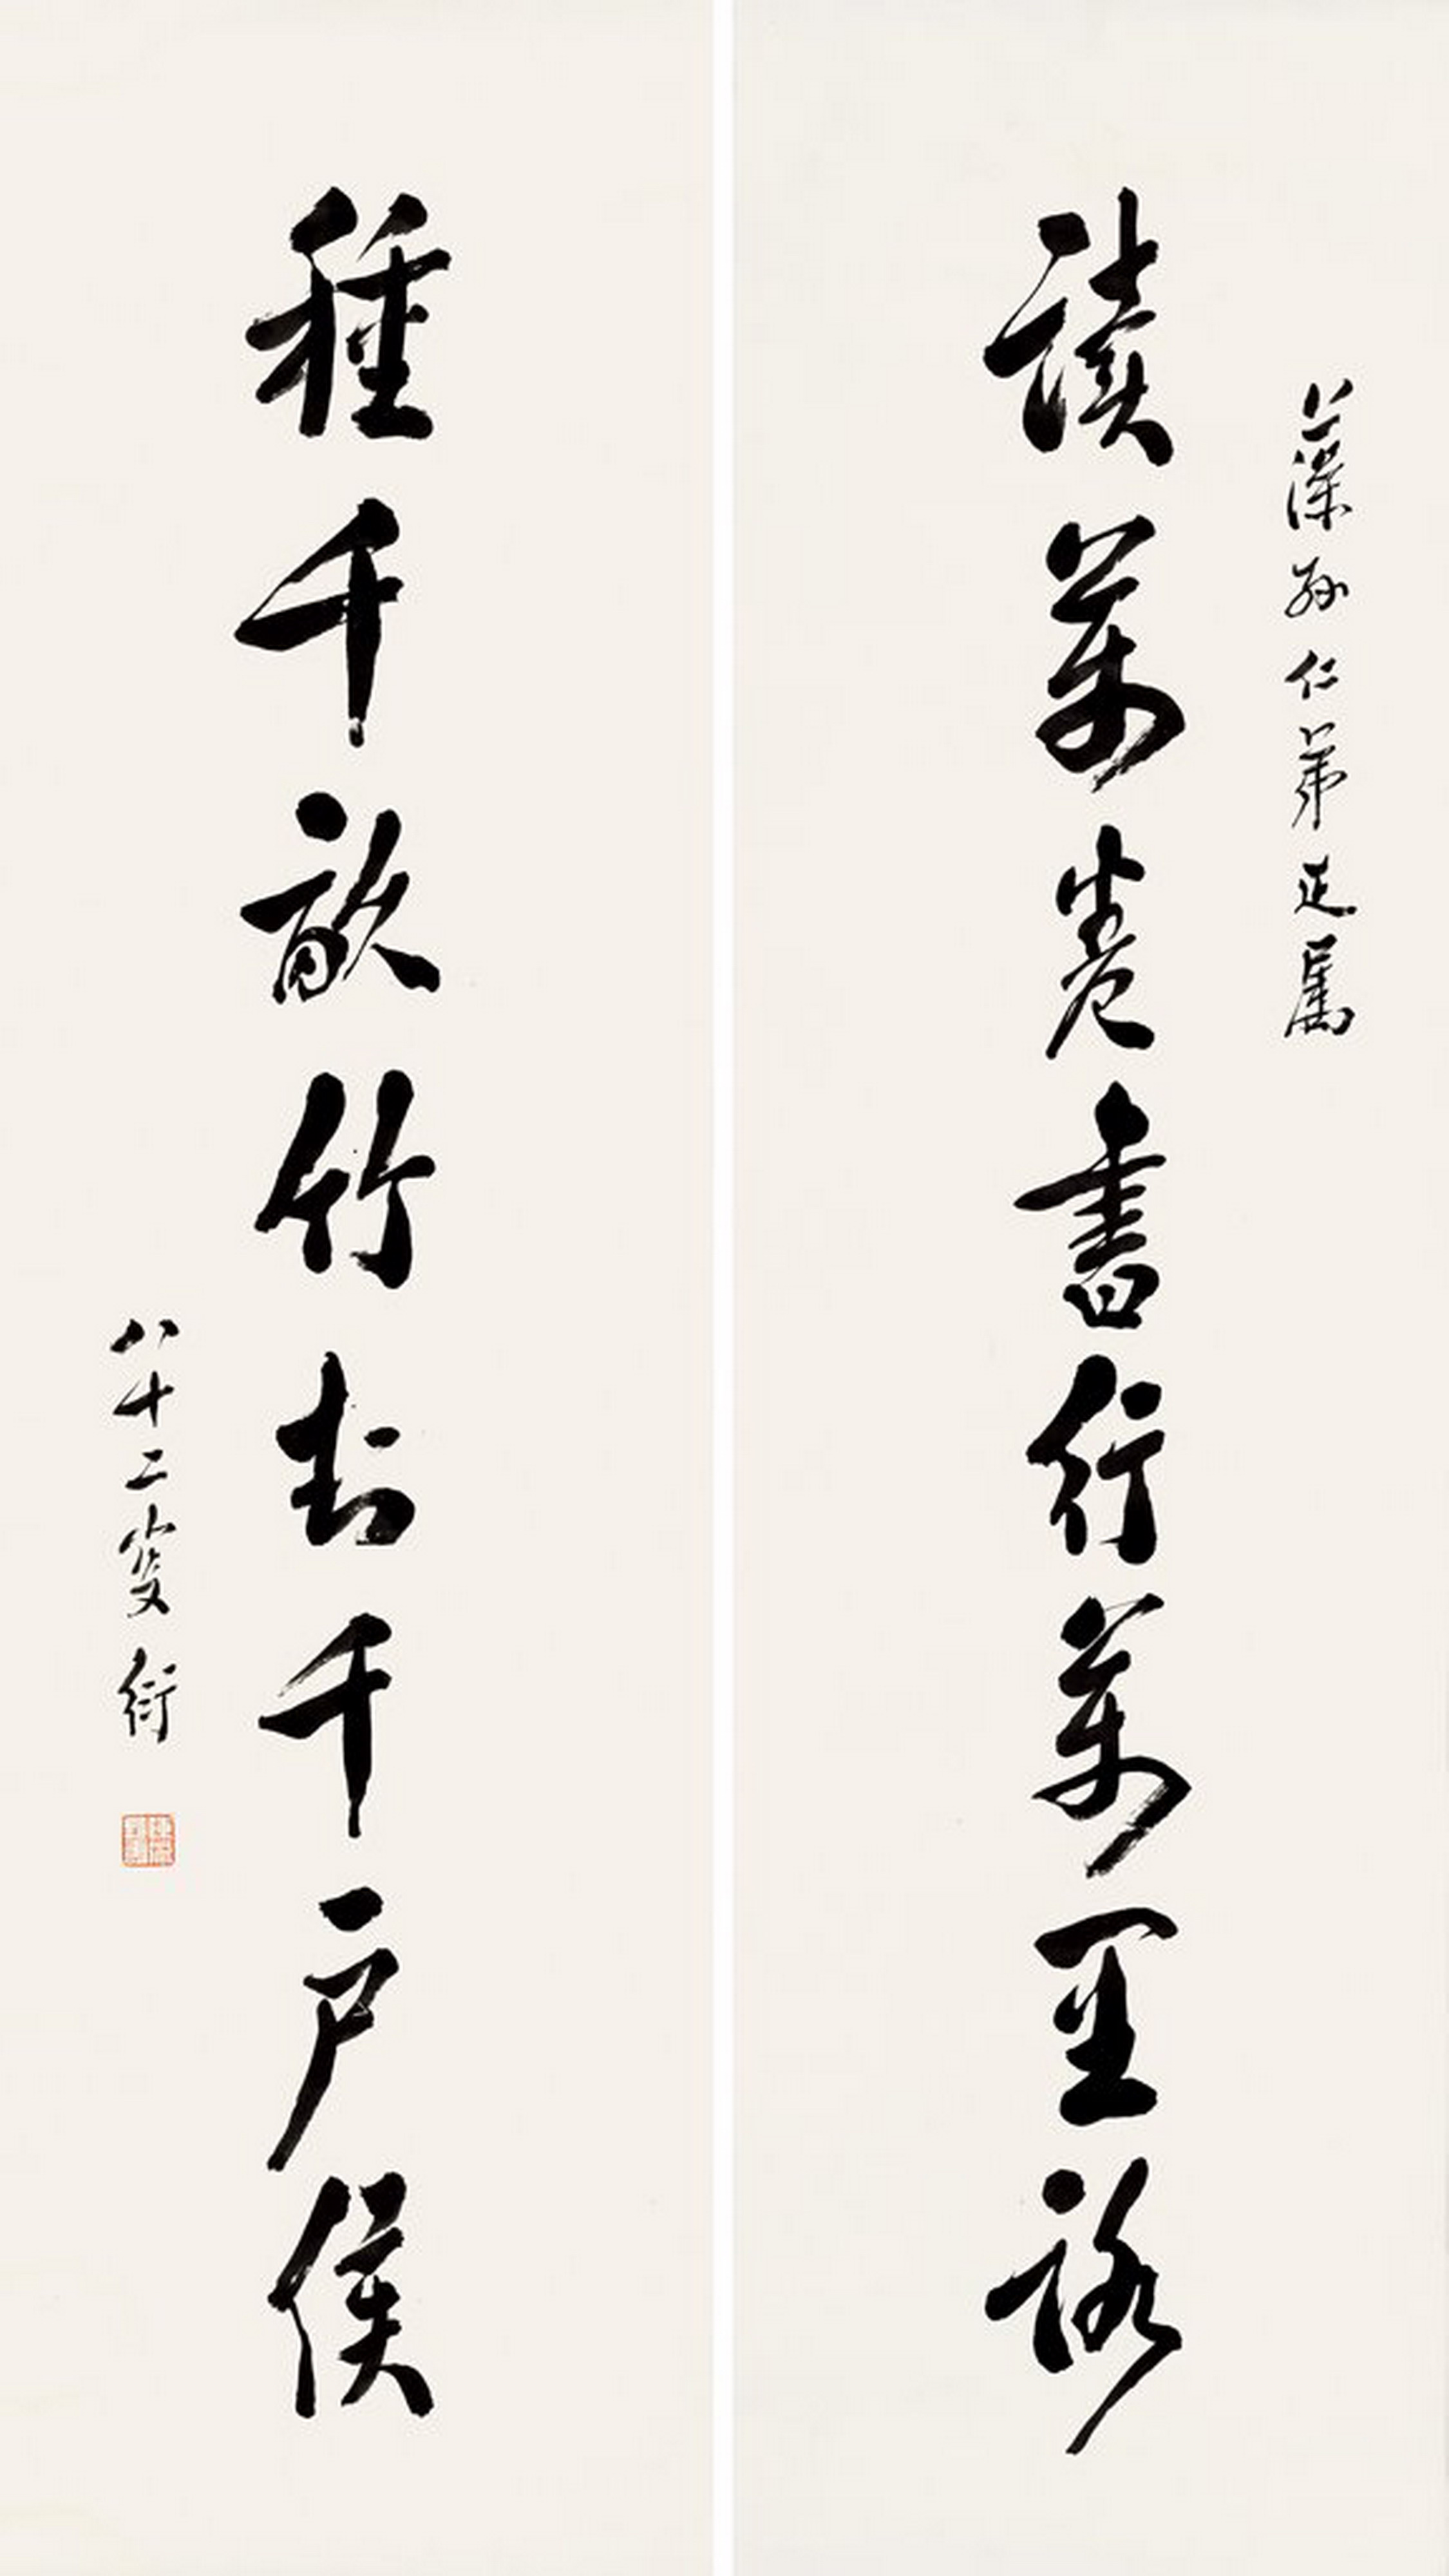 藻孙仁弟正属
讀萬卷書行萬里路
種千畝竹封千户侯
八十二叟衍